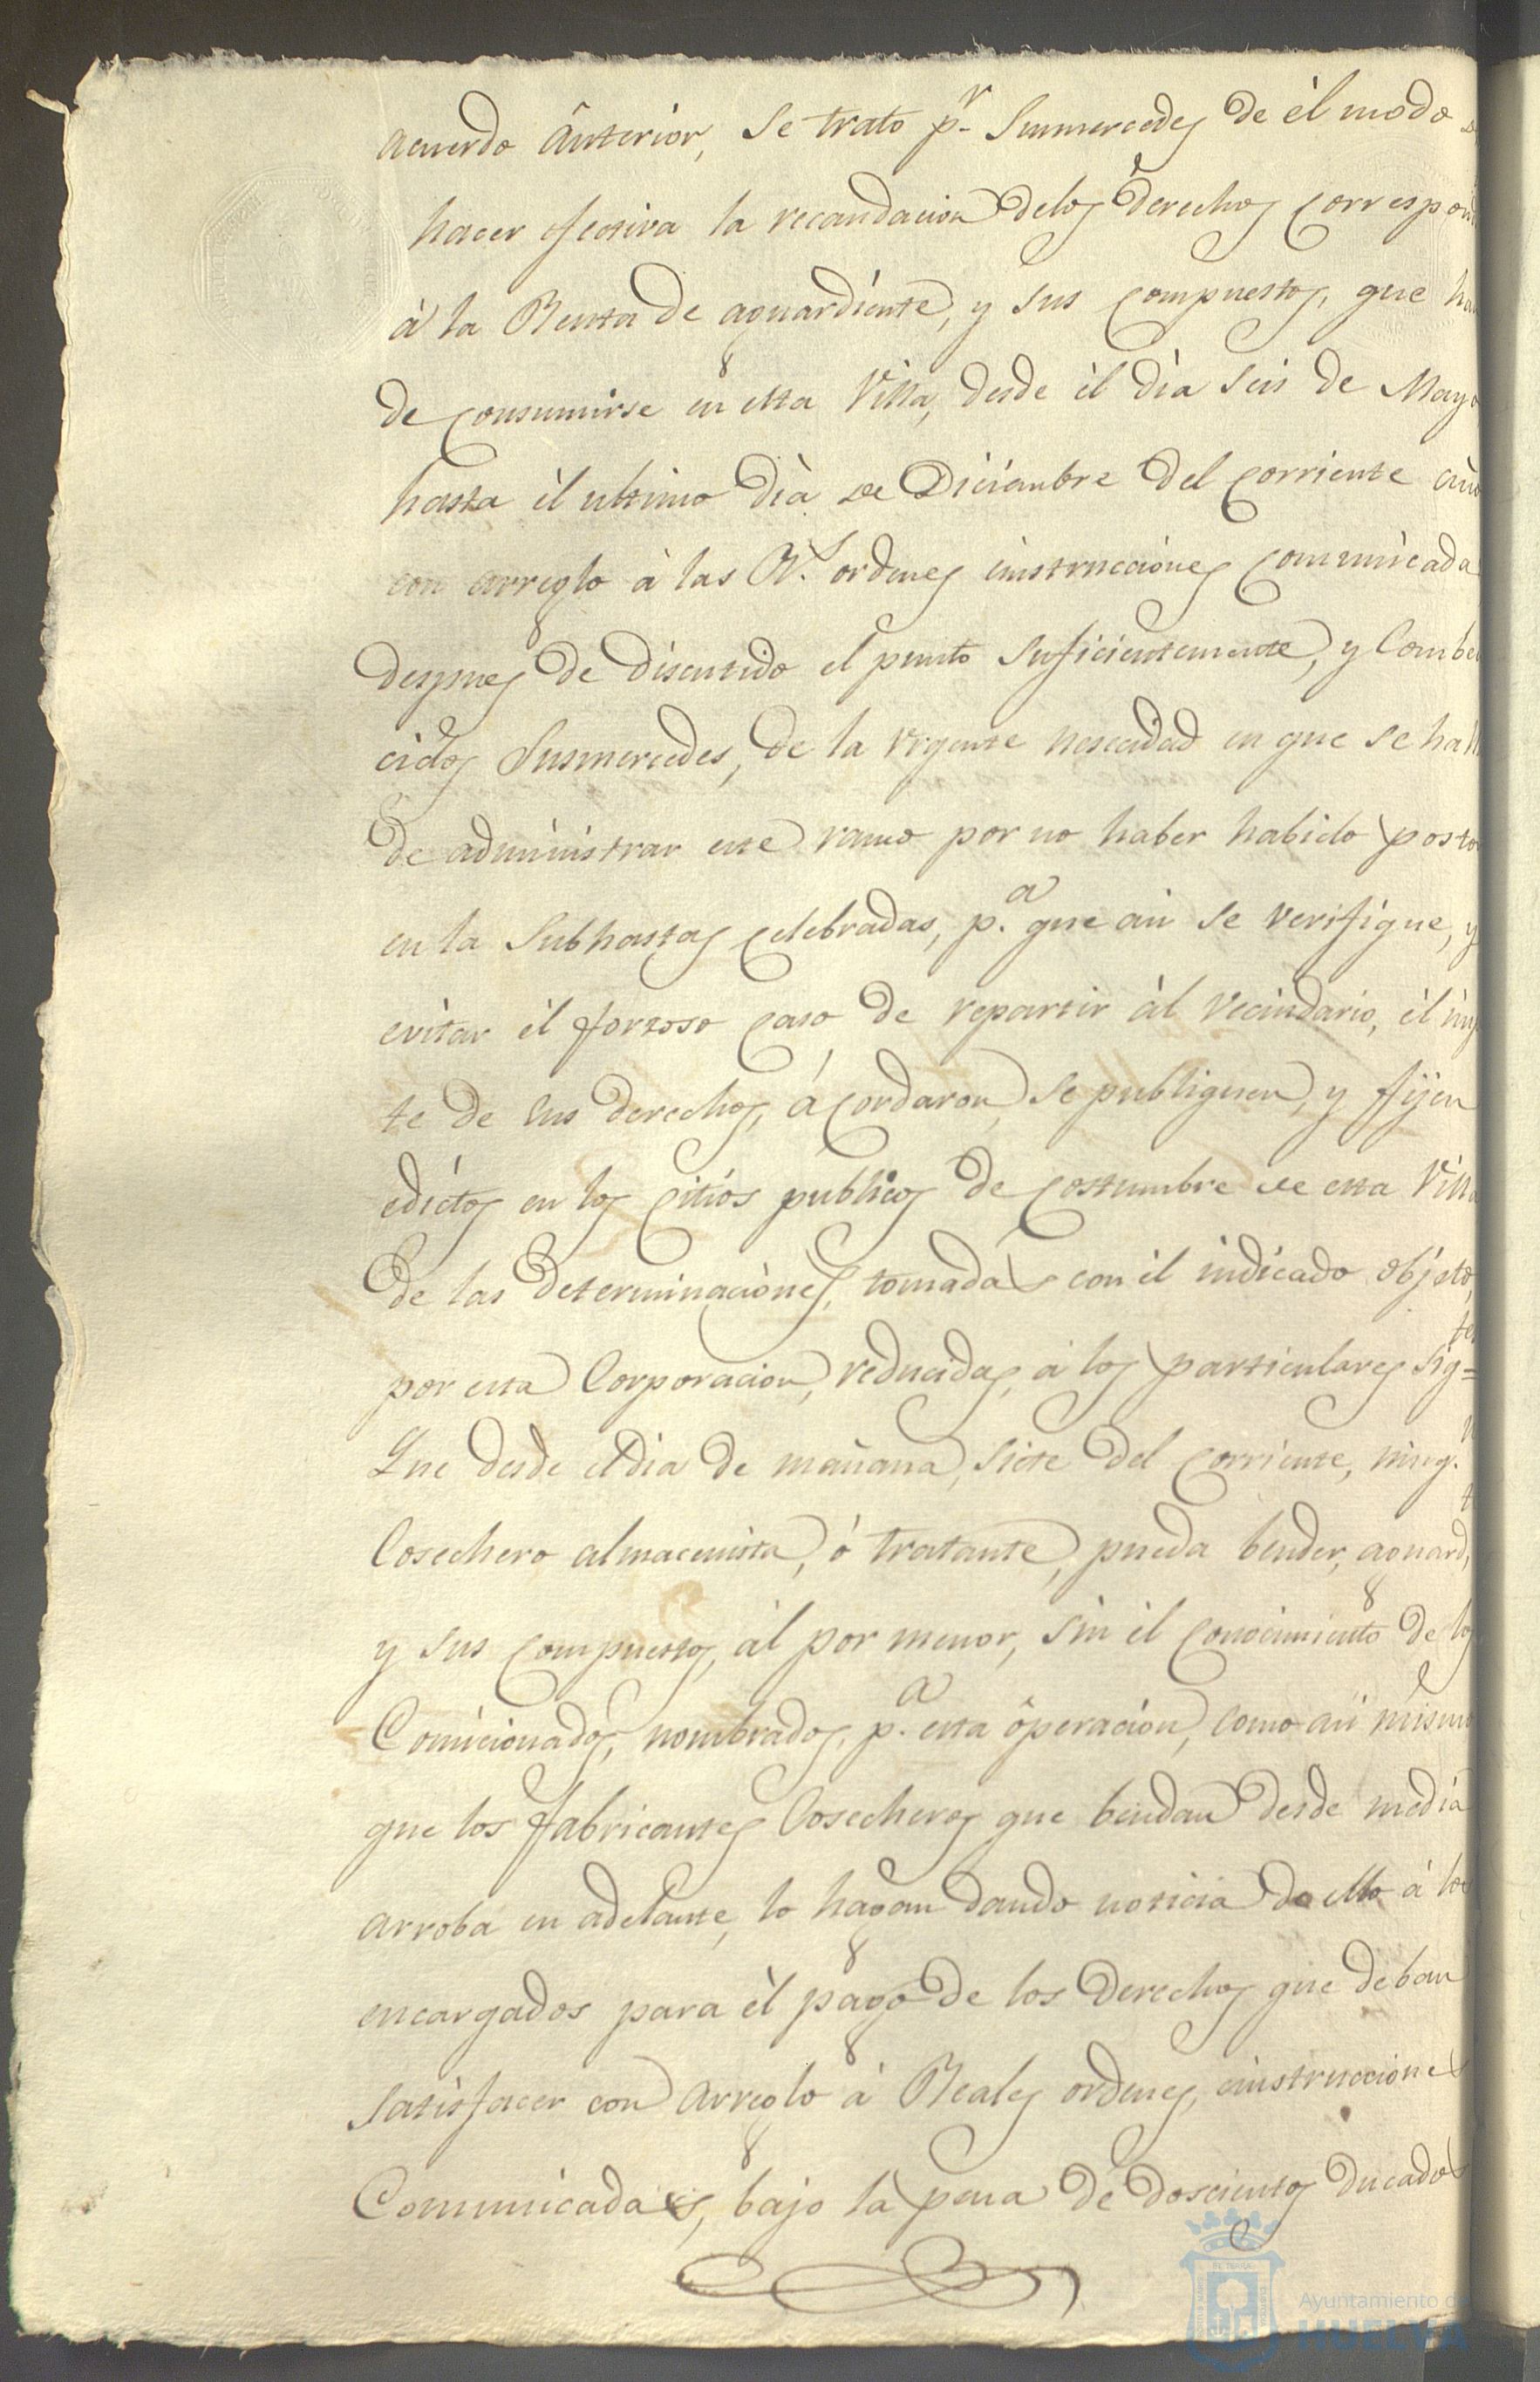 acuerdo ânterior, se trato p.r Susmercedes de él modo
hacer efectiva la recaudacion delos derechos correspond
à la Renta de aguardiente, y sus compuestos, que ha
de consumirse en esta Villa, desde èl dia seis de Mayo
hasta èl ultimo dìa de Diciembre del corriente año
con arreglo à las R.s ordenes èinstrucciónes comunicada
despues de discutido el punto suficientemente, y Combe
cidos Susmercedes, de la urgente neseidad en que se hall
de administrar este ramo por no haber habido posto
en la Subhastas celebradas, p.a que asi se verifique, y
evitar èl forsoso caso de repartir àl vecindario, èl imp
te de sus derechos, àcordaron se publiquen, y fijen
edictos en los citios publicos de costumbre de esta Villa
de las determinaciònes, tomadas con èl indicado objeto,
por esta Corporacion, reducidas, à los particulares sig=tes
Que desde eldia de mañana, siete del corriente, ning.n
Cosechero almacenista, ò tratante, pueda bender, aguard.te
y sus compuestos, àl por menor, sin èl conocimiento de los
Comicionados, nombrados, p.a esta ôperaciòn, como asi mismo
que los fabricantes Cosecheros que bendan desde media
arroba en adelante, lo hagan dando noticia de ello à los
encargados para èl pago de los derechos que deban
satisfacer con arreglo à Reales ordenes, èinstrucciones
Comunicadas, bajo la pena de doscientos ducados
Ayuntamiento de
HUELVA